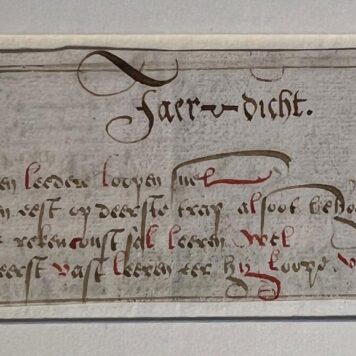 Jaer-dicht.
en leedere loopen snel
en eest op deerste trap alsoot beho
rekenconst sal leeren wel
eerst vast leeren eer hij loopt. v